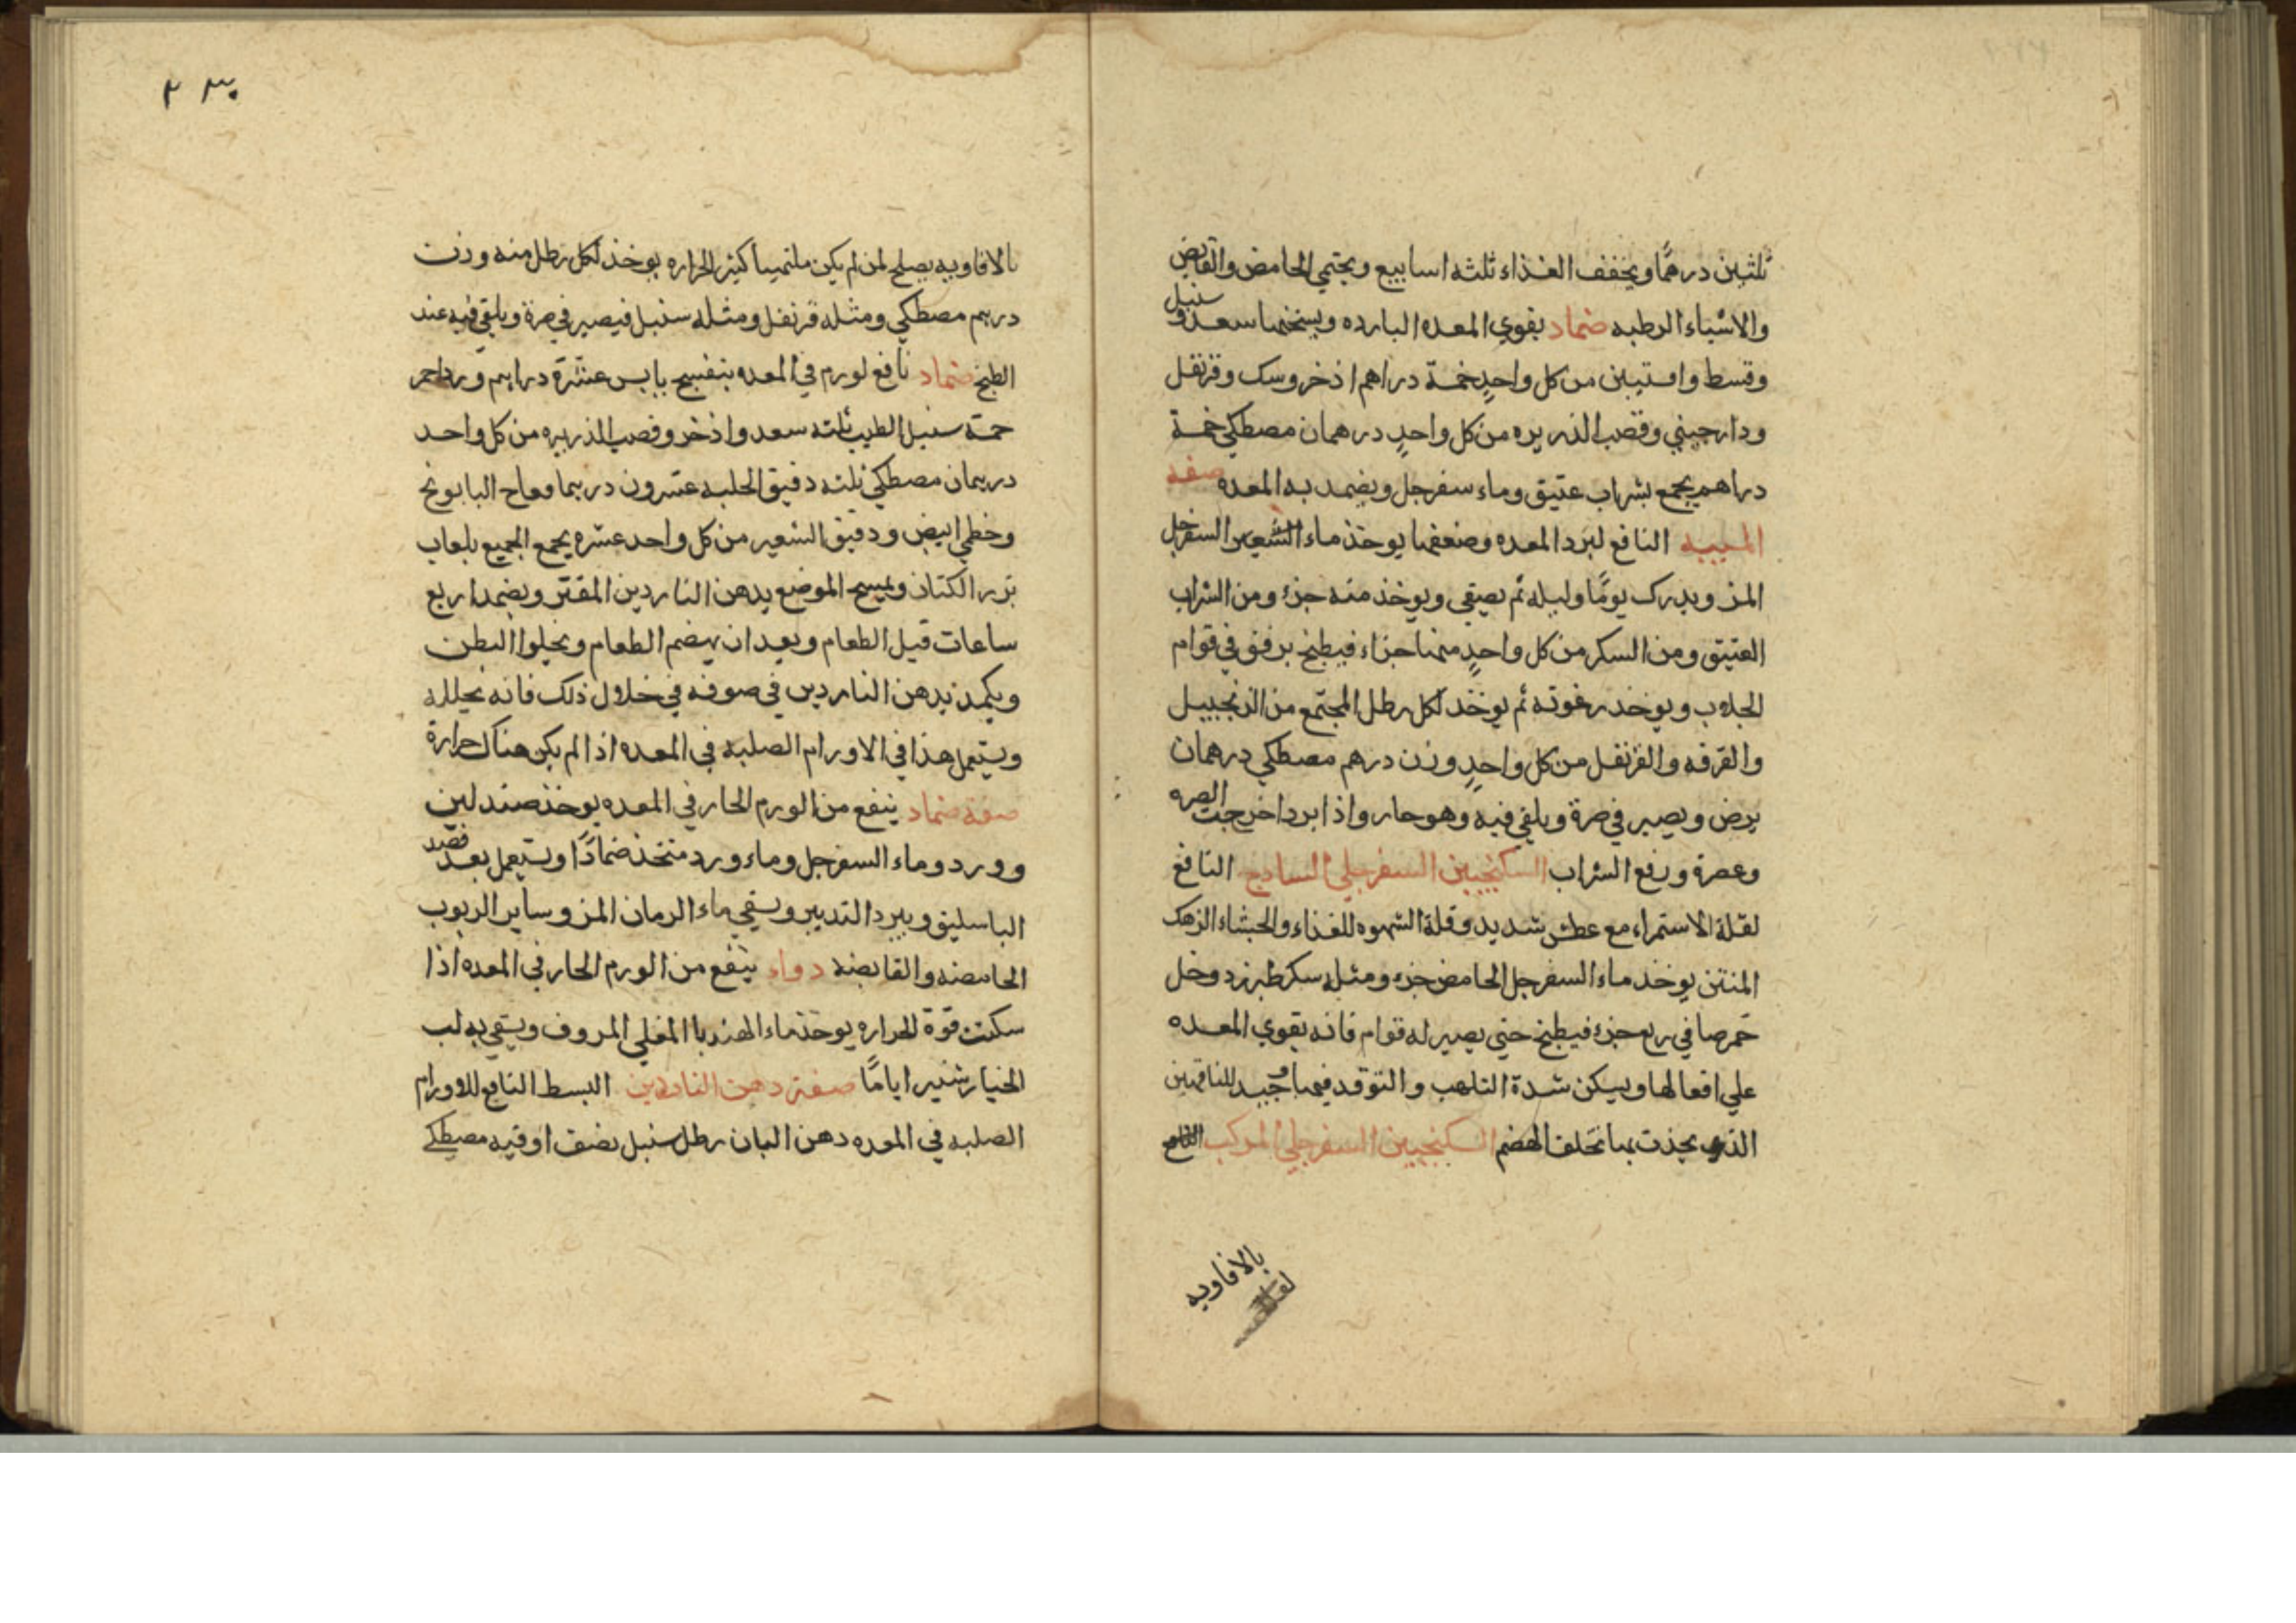 ثلثين درهمًا ويخفف الغذاء ثلثه اسابيع ويحتمي الحامض والقابض
والاشياء الرطبه ضماد يقوي المعده البارده ويسخنها سعد وسنبل
وقسط وافستين من كل واحدٍ خمسة دراهم اذخر وسك وقرنفل
ودارجيني وقصب الذريره من كل واحدٍ درهمان مصطكي خمسة
دراهم يجمع بشراب عتيق وماء سفرجل ويضمد به المعده صفه
الميبه النافع لبرد المعده وضعفها يوخذ ماء السفرجل
المز ويدرك يومًا وليله ثم يصفي ويوخذ منه جزء ومن الشراب
العتيق ومن السكر من كل واحدٍ منهما جزاء فيطبخ برفق في قوام
الجلاب ويوخذ رغوته ثم يوخذ لكل رطل المجتمع من الزنجبيل
والقرفه والقرنفل من كل واحدٍ وزن درهم مصطكي درهمان
يرض ويصير في صرة ويلقي فيه وهو حار واذا برد اخرجت الصره
وعصرة ورفع الشراب السكنجبين السفرجلي الساذج النافع
لقلة الاستمراء مع عطش شديد وقلة الشهوه للغذاء والجشاء الزهك
المنتن يوخذ ماء السفرجل الحامض جزء ومثله سكر طبرزد وخل
خمر صافي ربع جزء فيطبخ حتي يصير له قوام فانه يقوي المعده
علي افعالها ويسكن شدة التلهب والتوقد فيها وجيد للناقهين
الذي يحدث بها تخلف الهضم السكنجبين السفرجلي المركب
بالافاويه
٢٣٠
بالافاويه يصلح لمن لم يكن ملتهبا كثير الحراره يوخذ لكل رطل منه وزن
درهم مصطكي ومثله قرنفل ومثله سنبل فيصير في صرة ويلقي فيه عند
الطبخ ضماد نافع لورم في المعده بنفسج يابس عشرة دراهم ورد احمر
خمسة سنبل الطيب ثلثه سعد واذخر وقصب الذريره من كل واحد
درهمان مصطكي ثلثه دقيق الحلبه عشرون درهما وفاح البابونج
وخطمي ابيض ودقيق الشعير من كل واحد عشره يجمع الجميع بلعاب
بزر الكتان ويمسح الموضع بدهن الناردين المفتر ويضمد اربع
ساعات قبل الطعام وبعد ان يهضم الطعام ويخلوا البطن
ويكمد بدهن الناردين في صوفه في خلال ذلك فانه يحلله
ويستعمل هذا في الاورام الصلبه في المعده اذا لم يكن هناك حرارة
صفة ضماد ينفع من الورم الحار في المعده يوخذ صندلين
وورد وماء السفرجل وماء ورد متخذ ضمادًا ويستعمل بعد فصد
الباسليق ويبرد التدبير ويسقي ماء الرمان المز وساير الربوب
الحامضه والقابضه دواء ينفع من الورم الحار في المعده اذا
سكنت قوة الحراره يوخذ ماء الهندبا المغلي المروف ويسقي به لب
الخيار شنبر ايامًا صفة دهن الناردين البسط النافع للاورام
الصلبه في المعده دهن البان رطل سنبل نصف اوقيه مصطكي